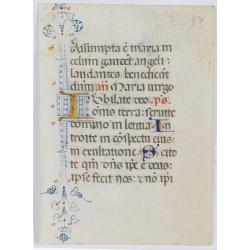 Assumpta ē maria in
celum gaudet angeli:
laudantes benedicūt
dnm añ Maria virgo
Iubilate deo ps.
omīs terra: seruite
domino in letitia In
troite in cōspectu eius
in exultatione Scito
te qm̄ dñs ip̄e ē deus:
ipse fecit nos: & nō ip̄i